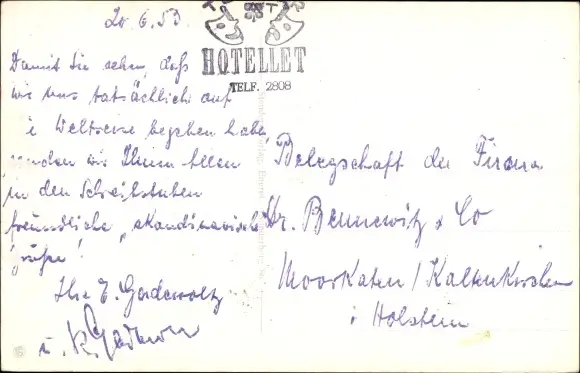 20.6.53.
HOTELLET
TELF. 2808
Damit Sie sehen, daß
wir uns tatsächlich auf
Weltreise begeben haben
senden wir Ihnen allen
in den Schreibstuben
freundliche „skandinavische
Grüße!
Ihr E.
u. K.
Belegschaft der Firma
Dr. Bennewitz & Co
Moorkaten / Kaltenkirchen
i Holstein